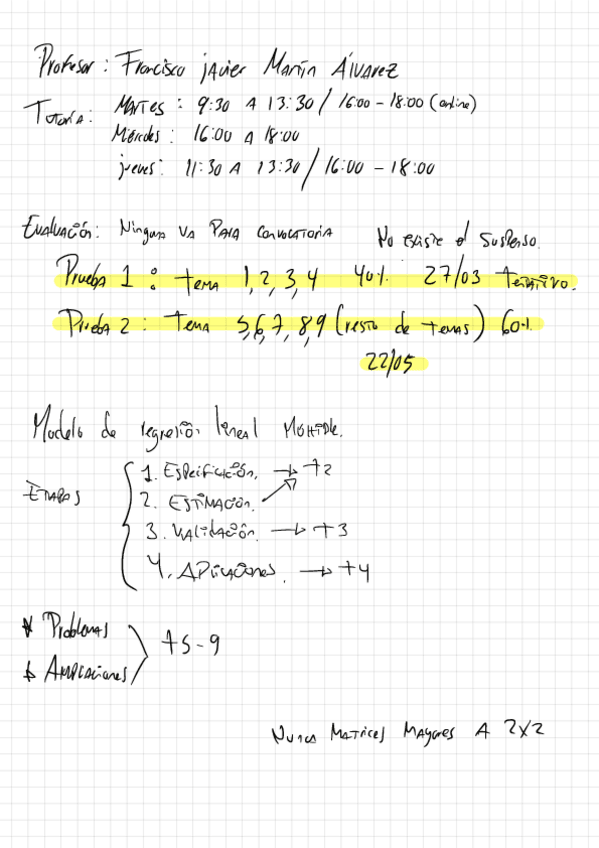 Profesor: Francisco javier Martín Álvarez
Tutoría: Martes: 9:30 A 13:30 / 16:00 - 18:00 (online)
Miércoles: 16:00 A 18:00
jueves: 11:30 A 13:30 / 16:00 - 18:00
Evaluación: Ninguna va Para convocatoria No existe el suspenso.
Prueba 1: tema 1, 2, 3, 4 40% 27/03 tentativo.
Prueba 2: Tema 5, 6, 7, 8, 9 (resto de temas) 60%
22/05
Modelo de regresión lineal Múltiple.
Etapas
1. Especificación. → t2
2. Estimación.
3. Validación. → t3
4. Aplicaciones. → t4
* Problemas
* Ampliaciones
t5-9
Nunca Matrices Mayores A 2x2